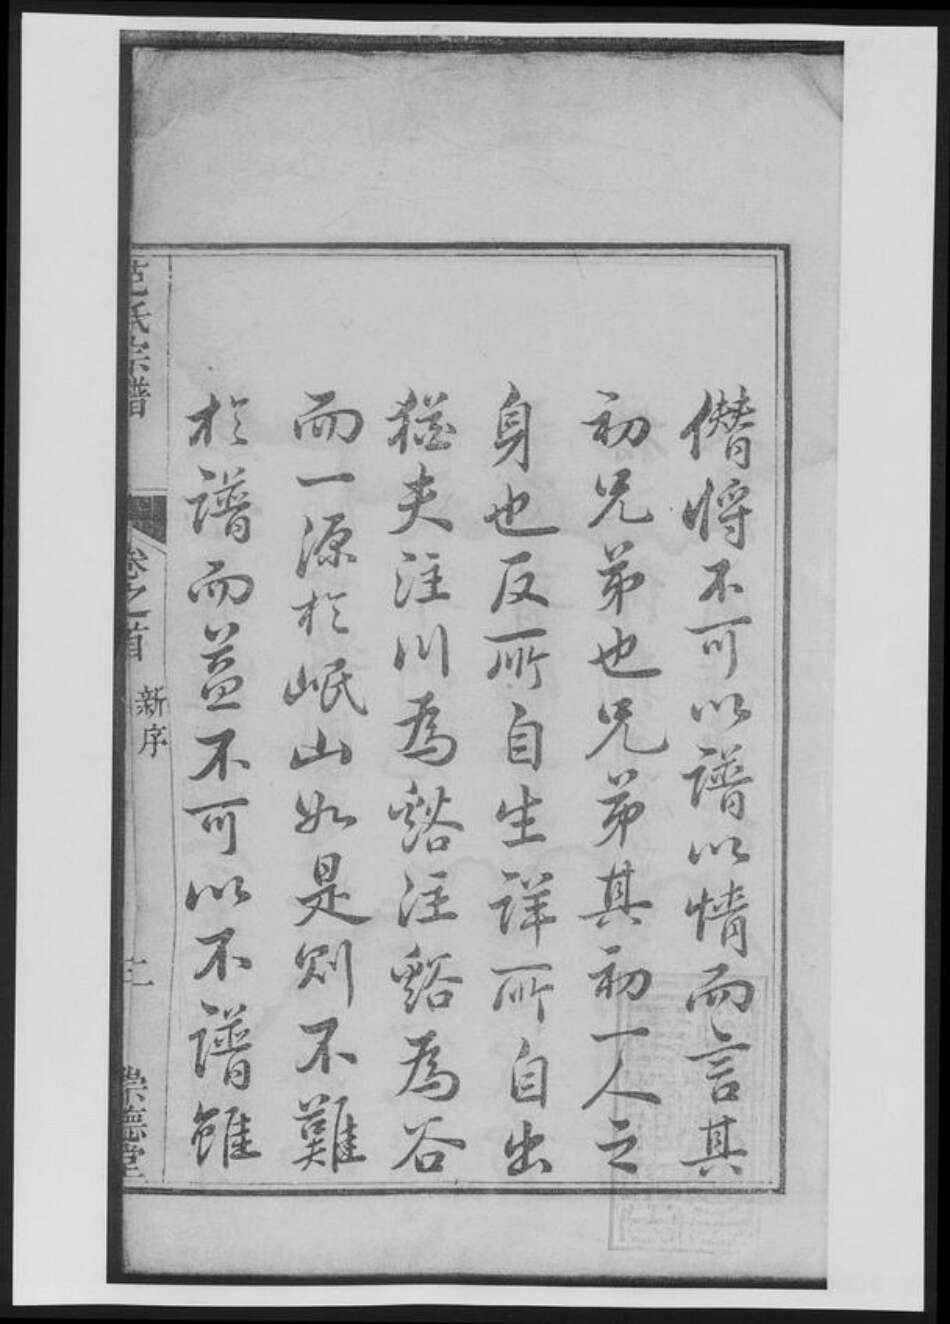 僭將不可以譜以情而言其
初兄弟也兄弟其初一人之
身也反所自生詳所自出
猶夫注川為谿注谿為谷
而一源於岷山如是則不難
於譜而益不可以不譜雖
范氏宗譜
卷之首
新序
三
崇德堂